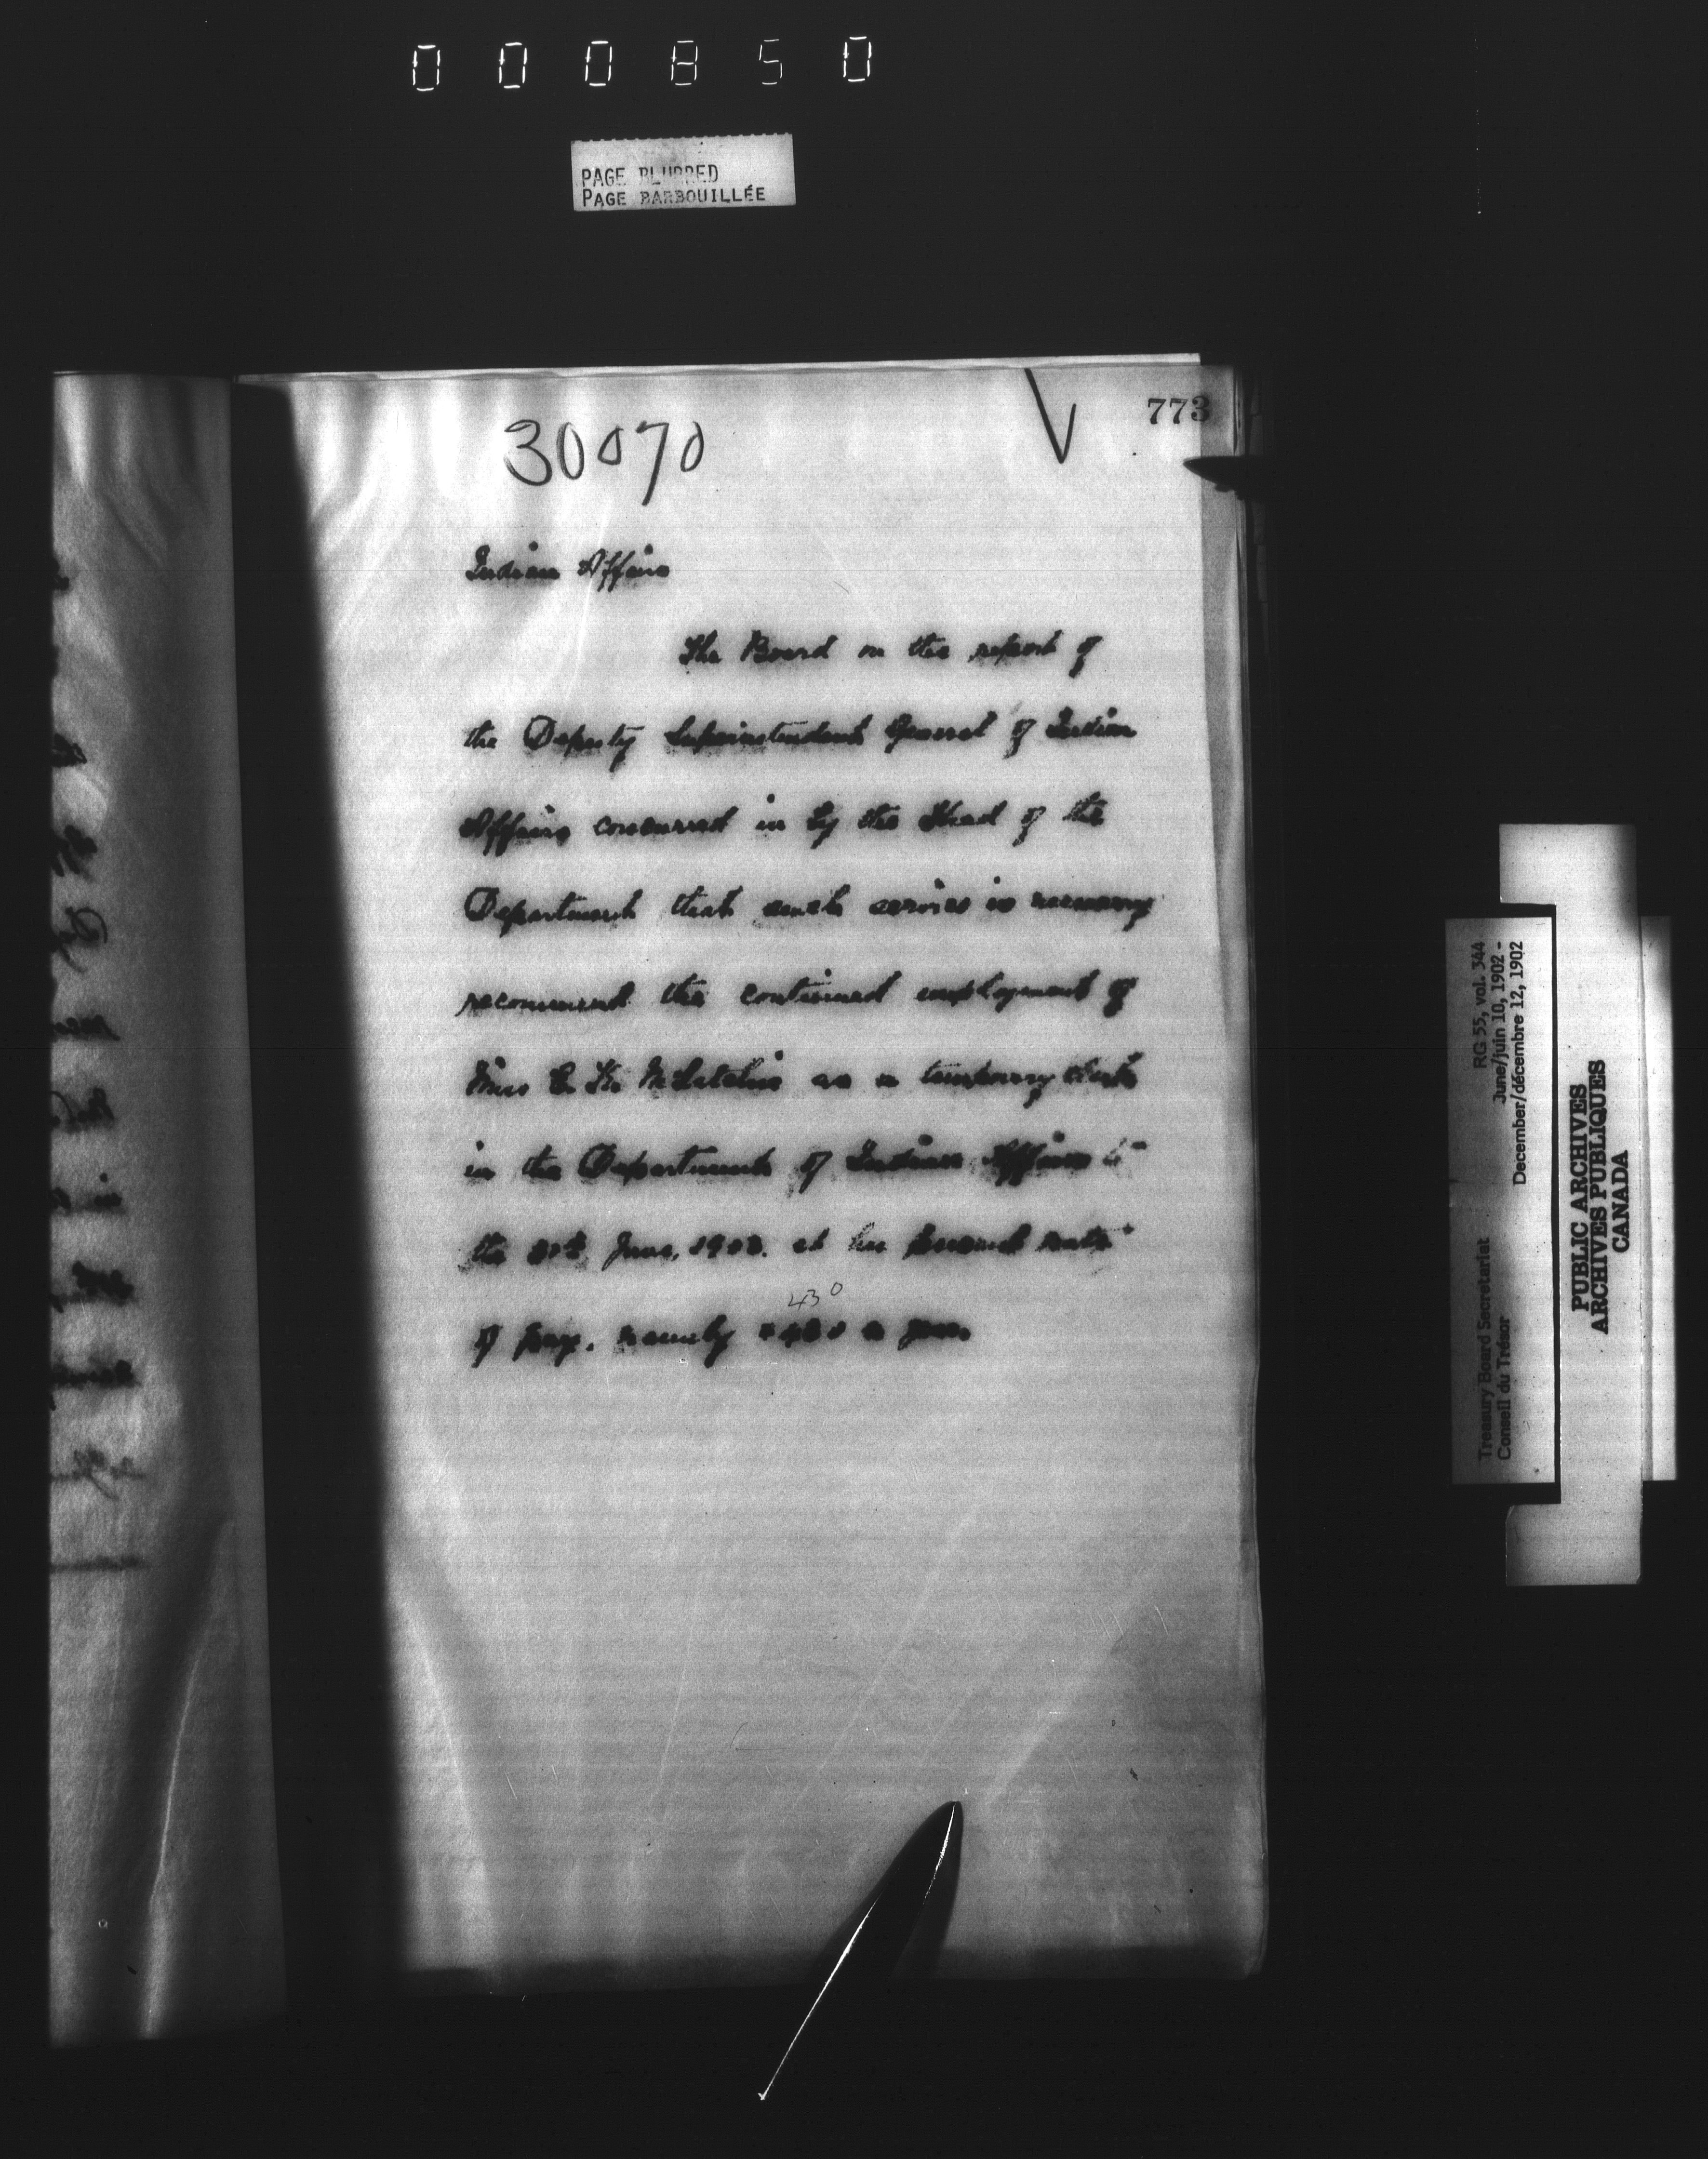 000850
PAGE BLURRED
PAGE BARBOUILLÉE
773
30070
Indian Affairs
The Board on the report of
the Deputy Superintendent General of Indian
Affairs concurred in by the Head of the
Department that such service is necessary
recommend the continued employment of
Miss as a temporary clerk
in the Department of Indian Affairs to
the 30th June, at her present rate
430
of pay, namely a year.
RG 55, vol. 344
June/juin 10, 1902 -
December/décembre 12, 1902
Treasury Board Secretariat
Conseil du Trésor
PUBLIC ARCHIVES
ARCHIVES PUBLIQUES
CANADA